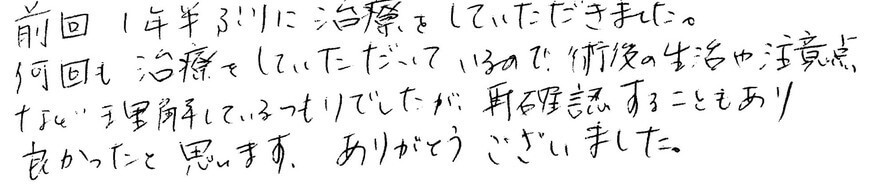 前回 1年半ぶりに治療をしていただきました。
何回も治療をしていただいているので、術後の生活や注意点
など理解しているつもりでしたが、再確認することもあり
良かったと思います。ありがとうございました。